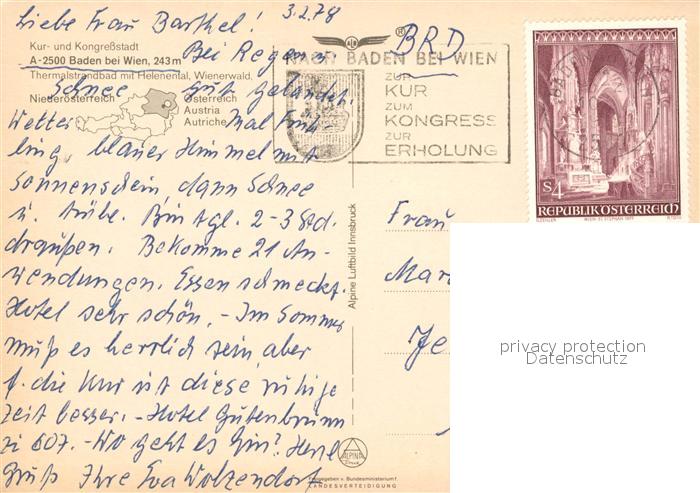 Liebe Frau Barthel! 3.2.78
BRD
Kur- und Kongreßstadt
A-2500 Baden bei Wien, 243 m
Bei Regen u.
Thermalstrandbad mit Helenental, Wienerwald.
Schnee gut gelandet.
Niederösterreich
Österreich
Austria
Autriche
Wetter Mal Früh-
ling, blauer Himmel mit
Sonnenschein dann Schnee
u. trübe. Bin tgl. 2-3 Std.
draußen. Bekomme 21 An-
wendungen. Essen schmeckt.
Hotel sehr schön. - Im Sommer
muß es herrlich sein, aber
f. die Kur ist diese ruhige
Zeit besser. - Hotel Gutenbrunn
Zi 607. - Wo geht es hin? Herzl.
Gruß Ihre Eva Wolzendorf
NACH BADEN BEI WIEN
ZUR
KUR
ZUM
KONGRESS
ZUR
ERHOLUNG
S4
REPUBLIK ÖSTERREICH
Alpine Luftbild Innsbruck
Frau
Mar
Je
ALPINA
Freigegeben v. Bundesministerium f.
LANDESVERTEIDIGUNG
privacy protection
Datenschutz